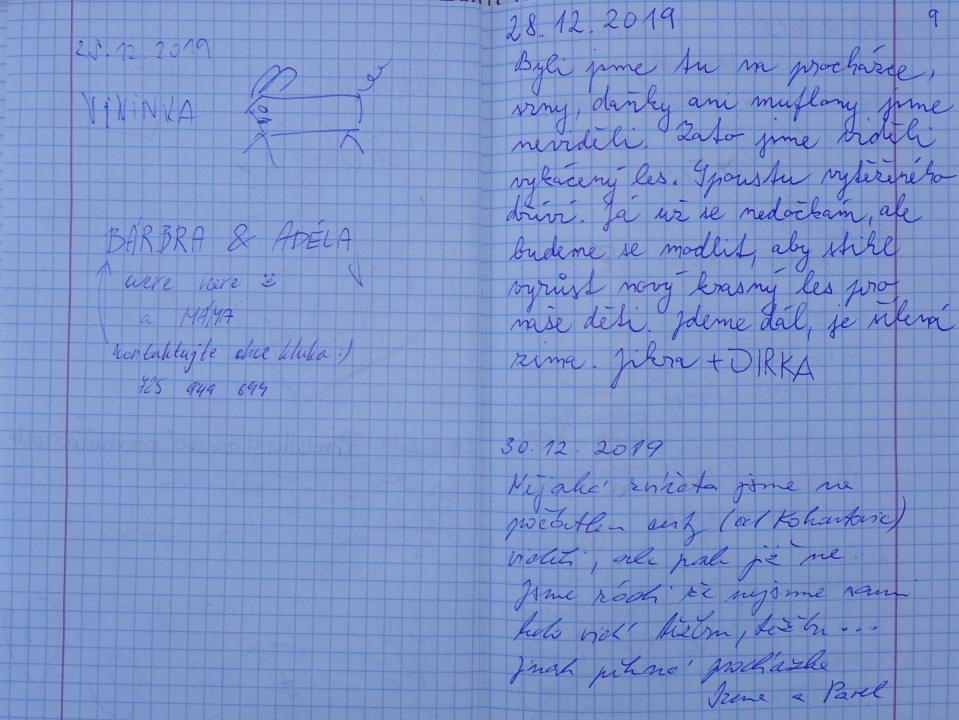 28.12.2019
VÍNINKA
BÁRBRA & ADÉLA
were here
a MÁMA
kontaktujte chce kluka :)
725 949 694
9
28.12.2019
Byli jsme tu na procházce,
srny, daňky ani muflony jsme
neviděli. Zato jsme viděli
vykácený les. Spoustu vytěženého
dříví. Já už se nedočkám, ale
budeme se modlit, aby stihl
vyrůst nový krásný les pro
naše děti. Jdeme dál, je šílená
zima. Jikra + DIRKA
30.12.2019
Nějaká zvířata jsme na
počátku cesty (od Kohoutovic)
viděli, ale pak již ne.
Jsme rádi že nejsme sami
kdo vidí těžbu, těžbu ...
Jinak pěkná procházka
Irena a Pavel